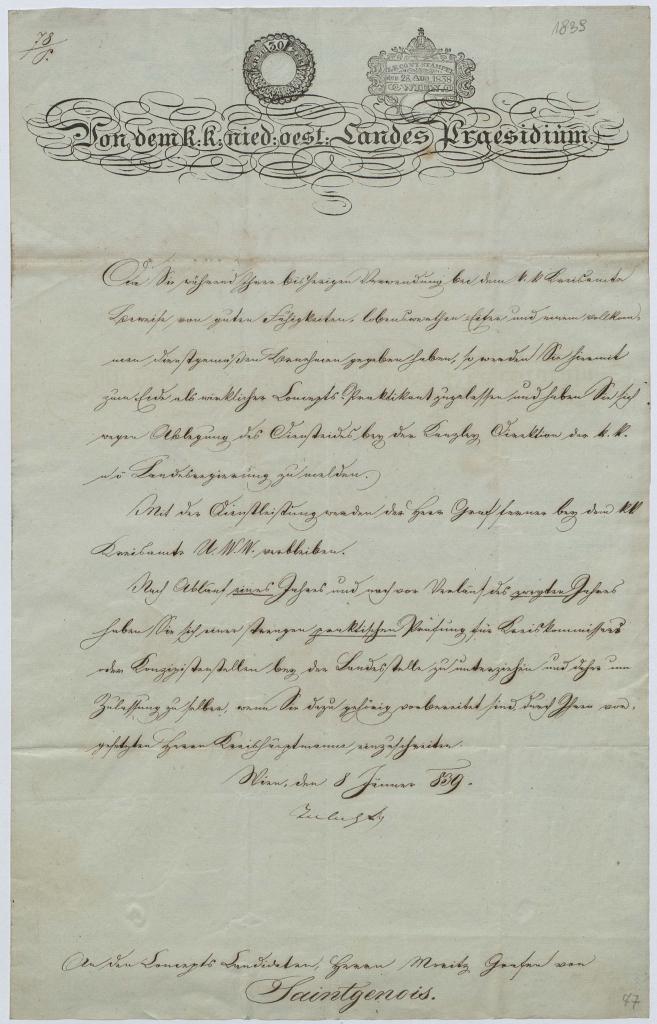 78/P.
1839
30
K.K. CONT. STAMPEL
den 28. Aug. 1838
Von dem k: k: nied: oest: Landes Præsidium.
Da Sie während Ihrer bisherigen Verwendung bei dem k. k Kreisamte
Beweise von guten Fähigkeiten, lobenswerthen Eifer und einem vollkom,
men dienstgemäßen Benehmen gegeben haben, so werden Sie hiermit
zum Eide als wirklicher Concepts-Praktikant zugelassen und haben Sie sich
wegen Ablegung des Diensteides bey der Kanzley Direktion der k. k.
n ö Landesregierung zu melden.
Mit der Dienstleistung werden der Herr Graf ferner bey dem kk
Kreisamte U. W. W. verbleiben.
Nach Ablauf eines Jahres und noch vor Verlauf des zweyten Jahres
haben Sie sich einer strengen praktischen Prüfung für Kreiskommissärs
oder Konzipistenstellen bey der Landesstelle zu unterziehen und daher um
Zulassung zu selber, wenn Sie dazu gehörig vorbereitet sind, durch Ihren vor,
gesetzten Herrn Kreishauptmann einzuschreiten.
Wien, den 8 Jänner 839.
An den Concepts Candidaten, Herrn Moritz Grafen von
Saintgenois.
47